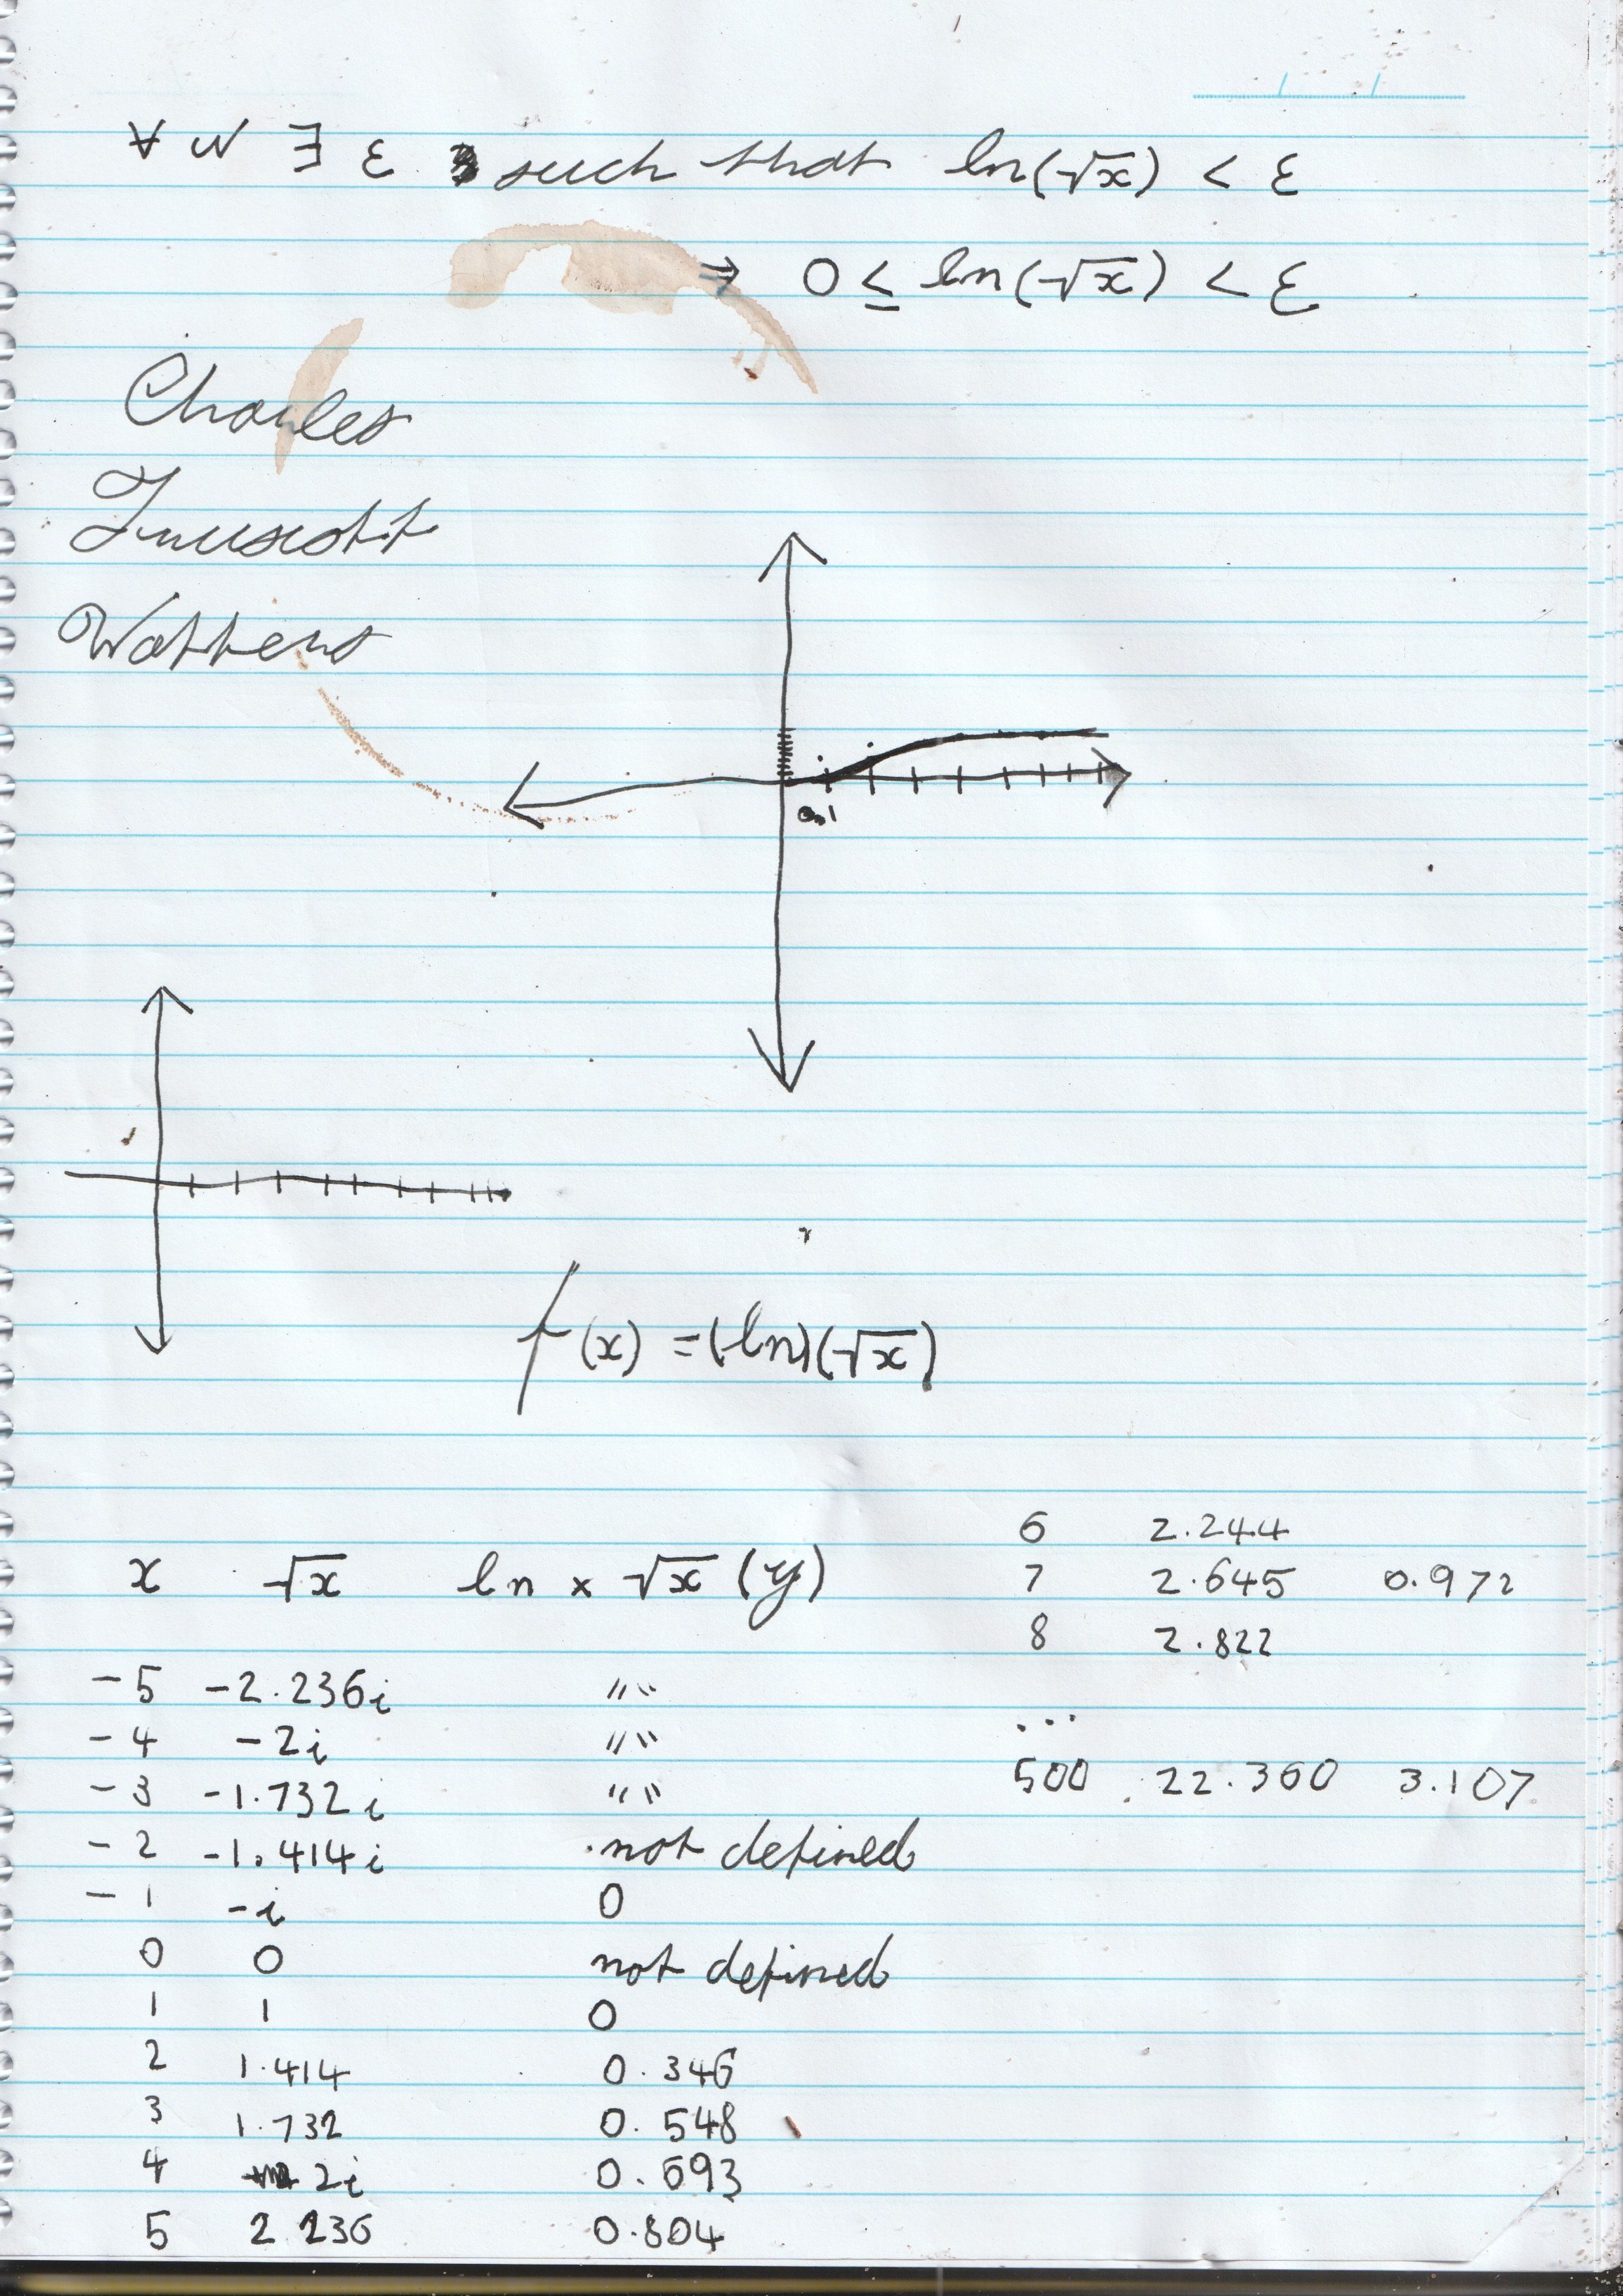 ∀ N ∃ ε such that ln(√x) < ε
⇒ 0 ≤ ln(√x) < ε
Charles
Watters
0.1
f(x) = (ln)(√x)
x √x ln × √x (y)
-5 -2.236i "
-4 -2i "
-3 -1.732i "
-2 -1.414i not defined
-1 -i 0
0 0 not defined
1 1 0
2 1.414 0.346
3 1.732 0.548
4 2i 0.693
5 2.236 0.804
6 2.244
7 2.645 0.972
8 2.822
...
500 22.360 3.107